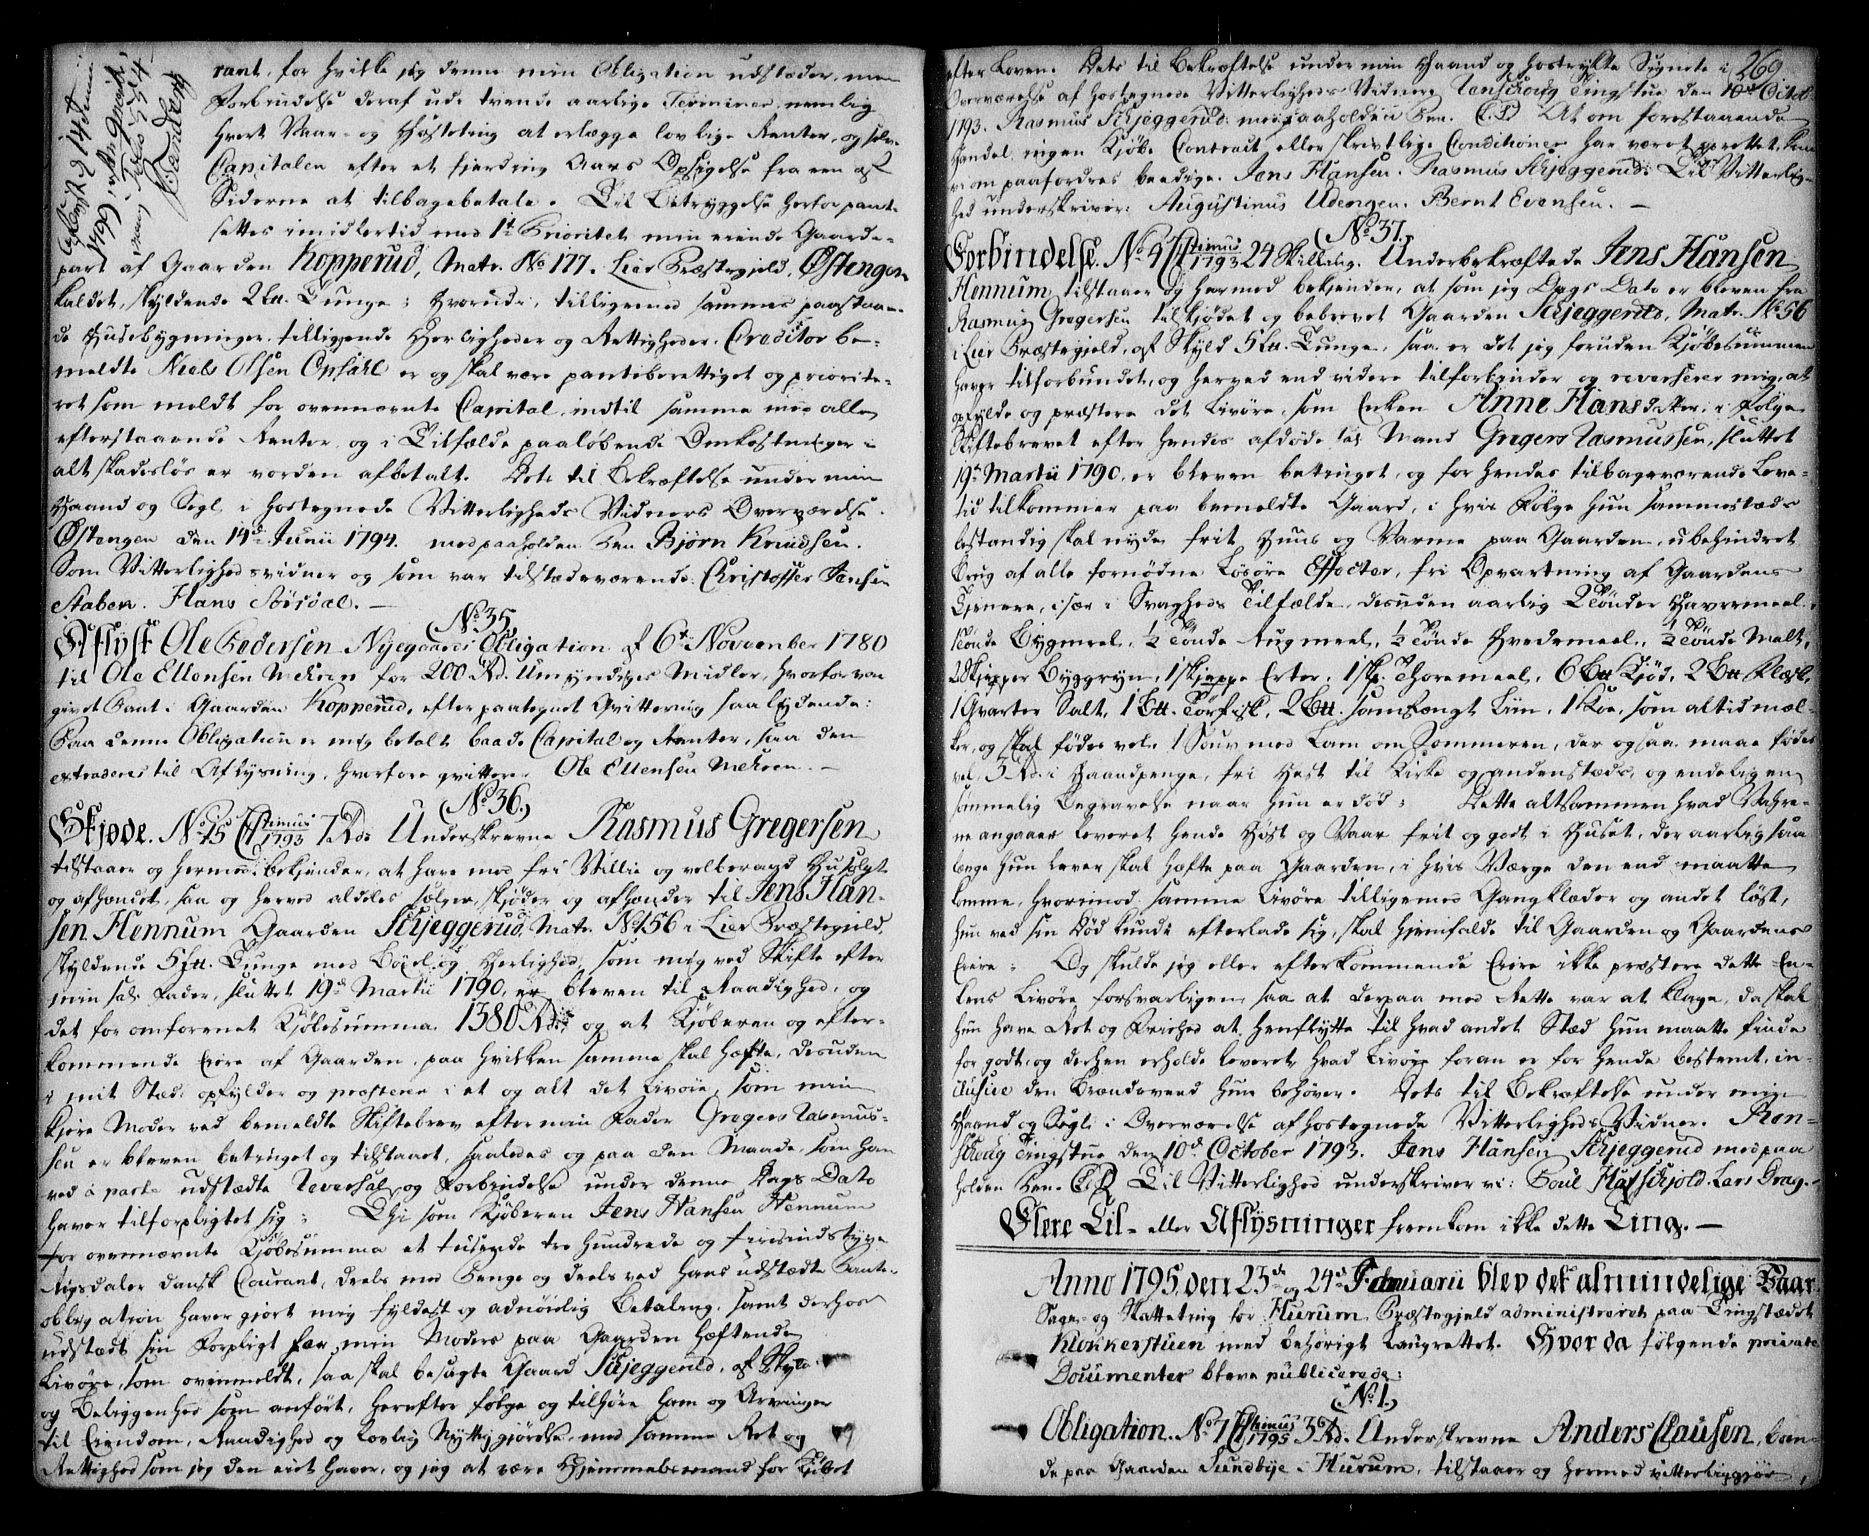 Aflyst d 14de Junii
1799, see Qvit
ering i Folio 274
Bendeke
rant, for hvilke jeg denne min Obligation udstæder, med
Forbindelse deraf udi tvende aarlige Terminer, nemlig
hvert Vaar- og Høsteting at erlægge lovlige Renter, og selve
Capitalen efter et fierding Aars Opsigelse fra een af
Siderne at tilbagebetale. Til Betryggelse herfor pant-
settes imidlertid med 1te Prioritet min eiende Gaarde-
part af Gaarden Kopperud, Matr. No 177. Lier Præstegield, Østengen
kaldet, skyldende 2 Lb. Tunge; hvorudi, tilligemed sammes paastaaen-
de Huusebygninger, tilliggende Herligheder og Rettigheder, Creditor be-
meldte Niels Olsen Opsahl er og skal være panteberettiget og priorite-
ret som meldt for ovennævnte Capital, indtil samme med alle
efterstaaende Renter og i Tilfælde paaløbende Omkostninger i
alt skadesløs er vorden afbetalt. Dets til Bekræftelse under min
Haand og Segl, i hostegnede Vitterligheds Vidners Overværelse.
Østengen den 14de Junii 1794. med paaholden Pen Biørn Knudsen.
Som Vitterligheds vidner og som var tilstædeværende: Christoffer Jensen
Staben. Hans Sørsdal. —
No 35.
Aflyst Ole Pedersen Nyegaards Obligation af 6te November 1780
til Ole Ellensen Mehren for 200 Rd. Umyndiges Midler, hvorfor var
givet Pant i Gaarden Kopperud, efter paategnet Qvittering saa lydende:
Paa denne Obligation er mig betalt baade Capital og Renter, saa den
extraderes til Aflysning, hvorfore qvitterer Ole Ellensen Mehren. —
No 36.
Skjøde. No 15 Stimus 1793 7 Rd. Underskrevne Rasmus Gregersen
tilstaaer og hermed bekjender, at have med fri Villie og velberaad Hu solgt
og afhændet, saa og herved aldeles sælger, skjøder og afhænder til Jens Han-
sen Hennum Gaarden Skjeggerud, Matr. No 156 i Lier Præstegield,
skyldende 5 Lb. Tunge med Bøxel og Herlighed, som mig ved Skifte efter
min sal. Fader, sluttet 19de Martii 1790, er bleven til Raadighed, og
det for omforenet Kjøbesumma 1380 Rdr. og at Kjøberen og efter-
kommende Eiere af Gaarden, paa hvilken samme skal hæfte, desuden
i mit Sted opfylder og præsterer i et og alt det Livøre, som min
kjere Moder ved bemeldte Skiftebrev efter min Fader Gregers Rasmus-
sen er bleven betinget og tilstaaet, saaledes og paa den Maade, som han
ved á parte udstædte Reversal og Forbindelse under denne Dags Dato
haver tilforpligtet sig; Thi som Kjøberen Jens Hansen Hennum
for ovennævnte Kjøbesumma et tusende tre hundrede og firesindstyve
Rigsdaler dansk Courant, deels med Penge og deels ved hans udstædte Pante-
obligation haver gjort mig fyldest og adnøielig Betaling, samt derhos
udstædt sin Forpligt for min Moders paa Gaarden hæftende
Livøre, som ovenmeldt, saa skal besagte Gaard Skjeggerud, af Skyld
og Beliggenhed som anført, herefter følge og tilhøre ham og Arvinger
til Eiendom, Raadighed og lovlig Nyttiggjørelse med samme Ret og
Rettighed som jeg den eiet haver, og jeg at være Hjemmelsmand for Kjøbet
269
efter Loven. Dets til Bekræftelse under min Haand og hostrykte Signete i
Overværelse af hostegnede Vitterligheds Vidner. Renschoug Tingstue den 10de Octob.
1793. Rasmus Skjeggerud. med paaholden Pen. (L.S.) At om forestaaende
Handel ingen Kjøbe Contract eller skrivtlige Conditioner har været oprettet, kan
vi om paafordres beedige. Jens Hansen. Rasmus Skjeggerud. Til Vitterlig-
hed underskriver: Augustinus Udengen. Bernt Evensen. —
No 37.
Forbindelse. No 4 Stimus 1793 24 Skilling. Underbekræftede Jens Hansen
Hennum tilstaaer og hermed bekjender, at som jeg Dags Dato er bleven fra
Rasmus Gregersen tilskjødet og bebrevet Gaarden Skjeggerud, Matr. No 156
i Lier Præstegield, af Skyld 5 Lb. Tunge, saa er det jeg foruden Kjøbesummen
haver tilforbundet, og herved end videre tilforbinder og reverserer mig, at
opfylde og præstere det Livøre, som Enken Anne Hansdatter, i Følge
Skiftebrevet efter hendes afdøde sal. Mand Gregers Rasmussen, sluttet
19de Martii 1790, er bleven betinget, og for hendes tilbageværende Leve-
tid tilkommer paa bemeldte Gaard, i hvis Følge hun sammestæds
bestandig skal nyde frit Huus og Varme paa Gaarden, ubehindret
Brug af alle fornødne Løsøre Effecter, fri Opvartning af Gaardens
Tjenere, især i Svagheds Tilfælde, desuden aarlig 2 Tønder Havremeel,
1 Tønde Bygmeel, ½ Tønde Rugmeel, ½ Tønde Hvedemeel, ½ Tønde Malt,
2 Skjepper Byggryn, 1 Skjeppe Erter, 1 Skp. Thoremeel, 6 Bpd. Kjød, 2 Bpd. Flæsk,
1 Qvarter Salt, 1 Bpd. Tørfisk, 2 Bpd. samfængt Liin, 1 Koe, som altid mæl-
ker, og skal fødes vel, 1 Souv med Lam om Sommeren, der ogsaa maae fødes
vel, 3 Rd. i Haandpenge, fri Hest til Kirke og andenstæds, og endelig en
sømmelig Begravelse naar hun er død; Dette altsammen hvad Vahre-
ne angaaer leveret hende Høst og Vaar frit og godt i Huset, der aarlig saa
længe hun lever skal hæfte paa Gaarden, i hvis Værge den end maatte
komme, hvorimod samme Livøre tilligemed Gangklæder og andet løst,
hun ved sin Død kunde efterlade sig, skal hjemfalde til Gaarden og Gaardens
Eiere. Og skulde jeg eller efterkommende Eiere ikke præstere dette En-
kens Livøre forsvarligen, saa at derpaa med Rette var at klage, da skal
hun have Ret og Friehed at henflytte til hvad andet Stæd hun maatte finde
for godt, og derhen erholde leveret hvad Livøre foran er for hende bestemt, in-
clusive den Brændeveed hun behøver. Dets til Bekræftelse under min
Haand og Segl i Overværelse af hostegnede Vitterligheds Vidner. Ren-
schoug Tingstue den 10de October 1793. Jens Hansen Skjeggerud med paa-
holden Pen. (L.S.) Til Vitterlighed underskriver vi: Poul Hasschjold. Lars Grag.
Flere Til- eller Aflysninger fremkom ikke dette Ting. —
Anno 1795, den 23de og 24de Februarii blev det almindelige Vaar
Sage- og Skatteting for Hurum Præstegield administreret paa Tingstædet
Klokkerstuen med behørigt Laugrettet. Hvor da følgende private
Documenter bleve publicerede:
No 1.
Obligation. No 7 Stimus 1795 36 s. Underskrevne Anders Clausen, boen-
de paa Gaarden Sundbye i Hurum, tilstaaer og hermed vitterliggjør